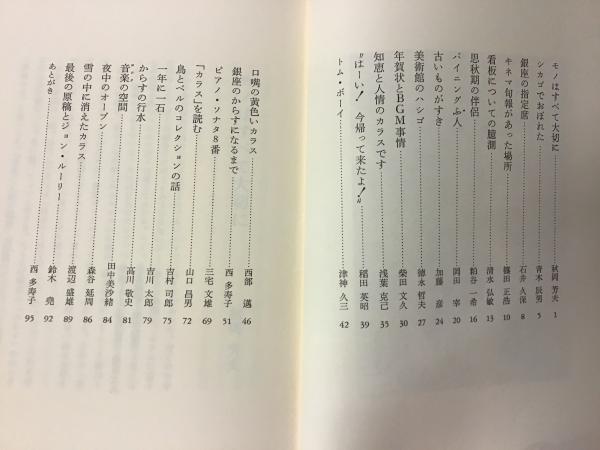 モノはすべて大切に 秋岡 芳夫 1
シカゴでおぼれた 青木 辰男 5
銀座の指定席 石井 久保 8
キネマ旬報があった場所 篠田 正浩 10
看板についての臆測 清水 弘敏 13
思秋期の伴侶 粕谷 一希 16
パイニングぷ・人 岡田 宰 20
古いものがすき 加藤 彦 24
美術館のハシゴ 徳永 哲夫 27
年賀状とBGM事情 柴田 文久 30
知恵と人情のカラスです 浅葉 克己 35
〝はーい! 今帰って来たよ!〟 稲田 英昭 39
トム・ボーイ 津神 久三 42
口嘴の黄色いカラス 西部 邁 46
銀座のからすになるまで 西 多寿子 51
ピアノ・ソナタ8番 三宅 文雄 69
「カラス」を読む 山口 昌男 72
鳥とベルのコレクションの話 吉村 司郎 75
一年に一石 吉川 太郎 79
からすの行水 高川 敬史 81
音楽の空間 田中美沙緒 84
夜中のオープン 森谷 延周 86
雪の中に消えたカラス 渡辺 盛雄 89
最後の原稿とジョン・ルーリー 鈴木 堯 92
あとがき 西 多寿子 95